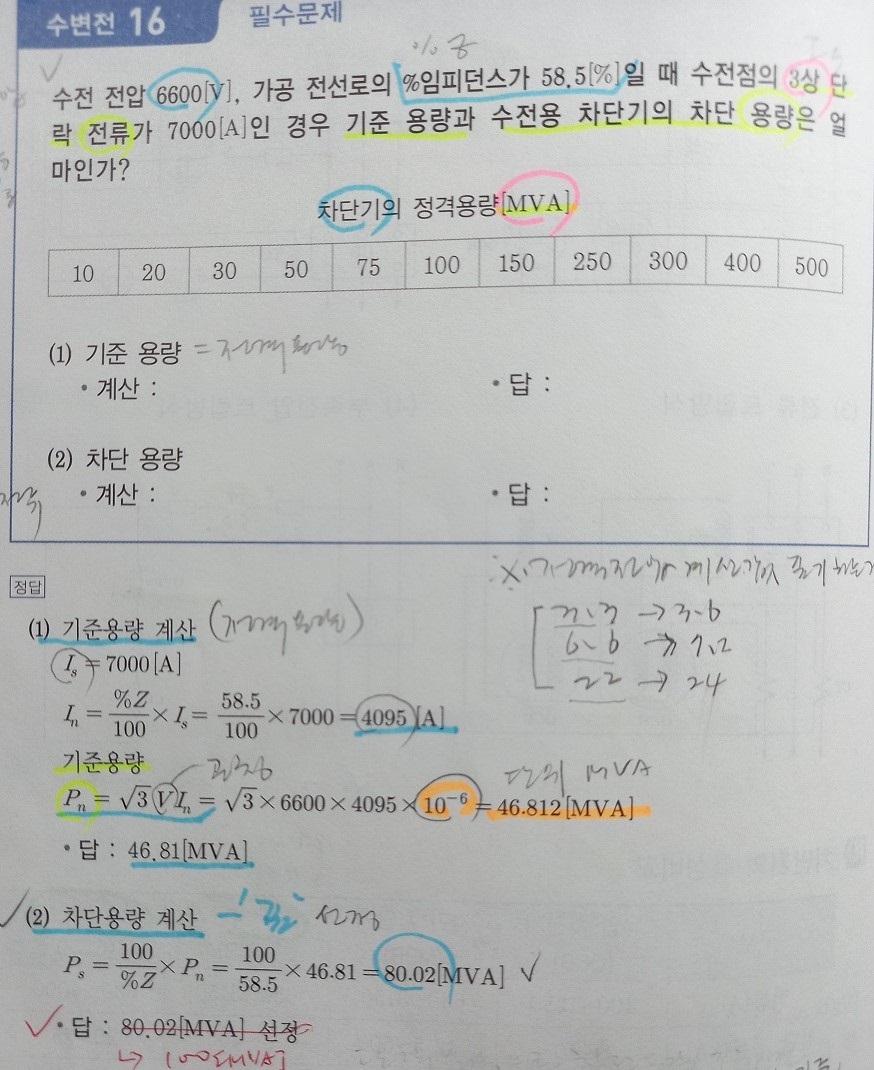 수변전 16 필수문제
% Z
수전 전압 6600[V], 가공 전선로의 %임피던스가 58.5[%]일 때 수전점의 3상 단
락 전류가 7000[A]인 경우 기준 용량과 수전용 차단기의 차단 용량은 얼
마인가?
차단기의 정격용량[MVA]
10 20 30 50 75 100 150 250 300 400 500
(1) 기준 용량 = 정격용량
• 계산 : • 답 :
(2) 차단 용량
• 계산 : • 답 :
정답
(1) 기준용량 계산 (정격용량)
→ 3.6
6.6 → 7.2
22 → 24
I_s = 7000[A]
I_n = %Z/100 × I_s = 58.5/100 × 7000 = 4095[A]
기준용량 단위 MVA
P_n = √3 V I_n = √3 × 6600 × 4095 × 10⁻⁶ = 46.812[MVA]
• 답 : 46.81[MVA]
(2) 차단용량 계산 선정
P_s = 100/%Z × P_n = 100/58.5 × 46.81 = 80.02[MVA]
• 답 : 80.02[MVA] 선정
↳ 100[MVA]